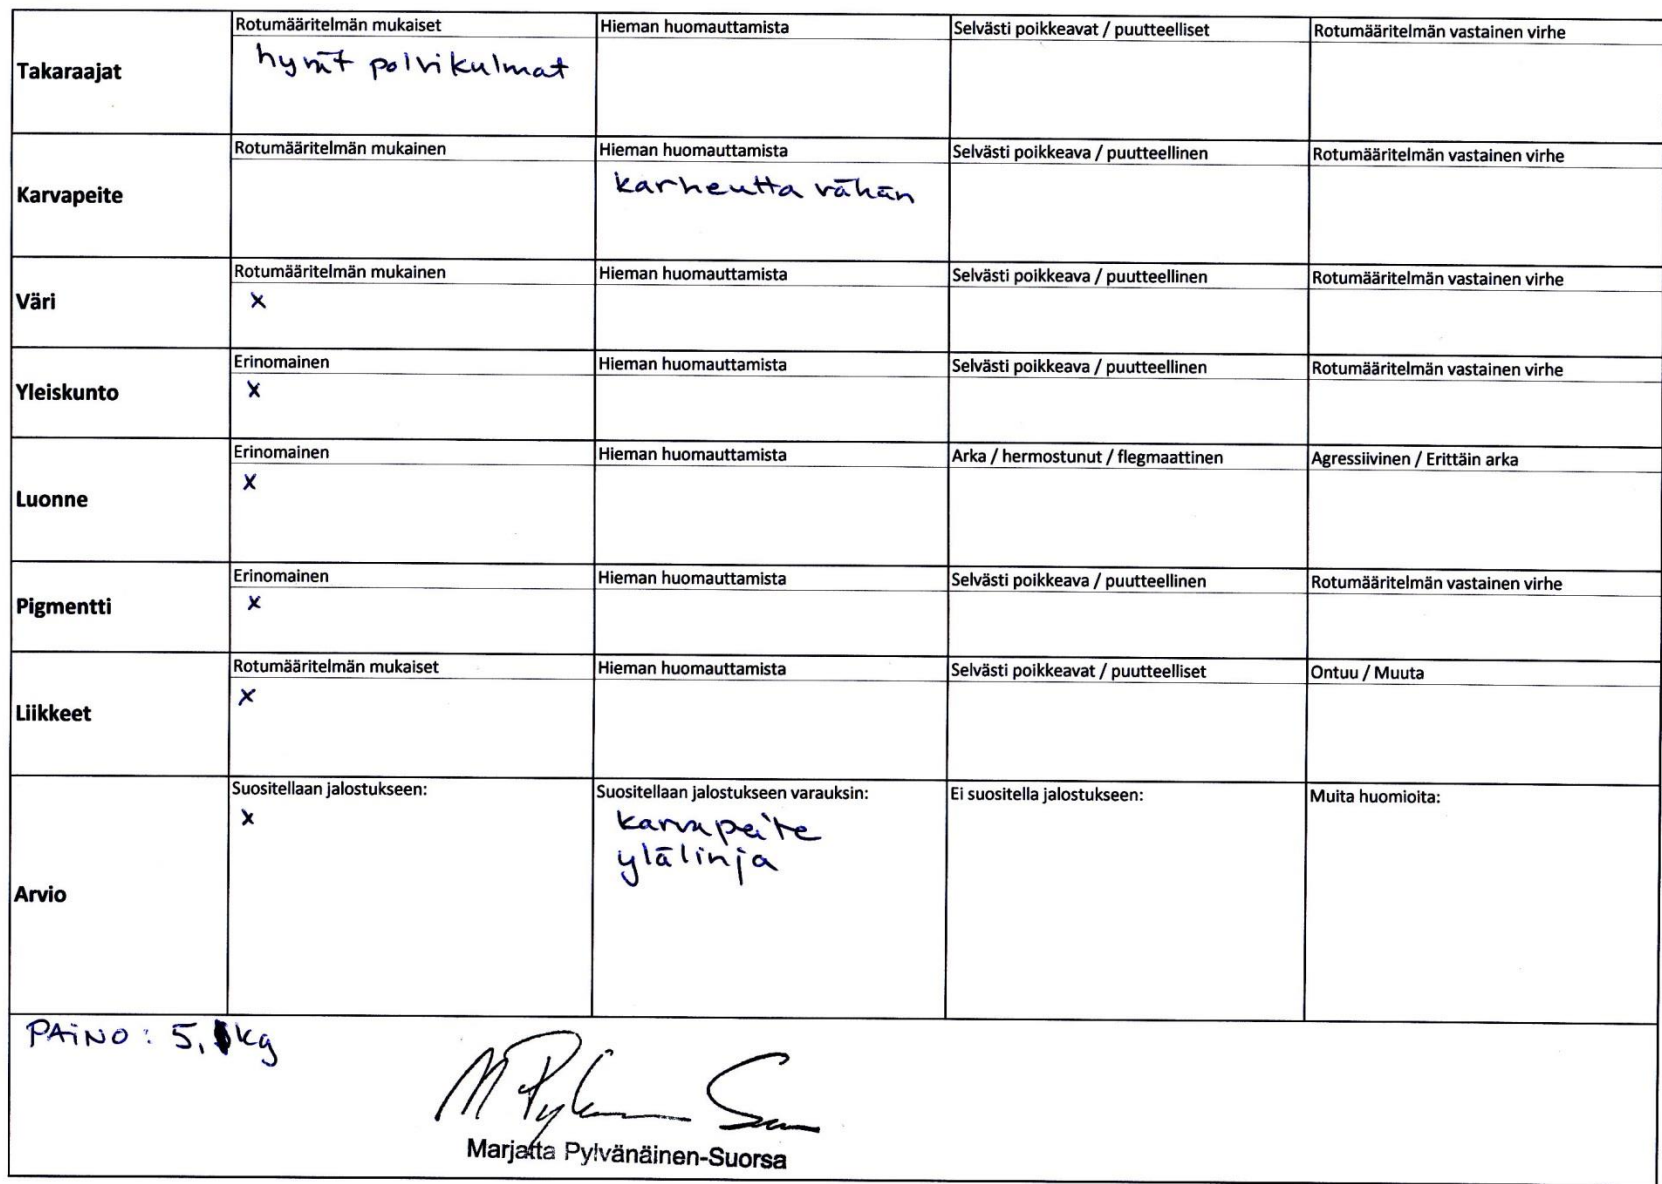 Takaraajat
Rotumääritelmän mukaiset
hyvät polvikulmat
Hieman huomauttamista
Selvästi poikkeavat / puutteelliset
Rotumääritelmän vastainen virhe
Karvapeite
Rotumääritelmän mukainen
Hieman huomauttamista
karheutta vähän
Selvästi poikkeava / puutteellinen
Rotumääritelmän vastainen virhe
Väri
Rotumääritelmän mukainen
x
Hieman huomauttamista
Selvästi poikkeava / puutteellinen
Rotumääritelmän vastainen virhe
Yleiskunto
Erinomainen
x
Hieman huomauttamista
Selvästi poikkeava / puutteellinen
Rotumääritelmän vastainen virhe
Luonne
Erinomainen
x
Hieman huomauttamista
Arka / hermostunut / flegmaattinen
Agressiivinen / Erittäin arka
Pigmentti
Erinomainen
x
Hieman huomauttamista
Selvästi poikkeava / puutteellinen
Rotumääritelmän vastainen virhe
Liikkeet
Rotumääritelmän mukaiset
x
Hieman huomauttamista
Selvästi poikkeavat / puutteelliset
Ontuu / Muuta
Arvio
Suositellaan jalostukseen:
x
Suositellaan jalostukseen varauksin:
karvapeite
ylälinja
Ei suositella jalostukseen:
Muita huomioita:
PAINO:
Marjatta Pylvänäinen-Suorsa